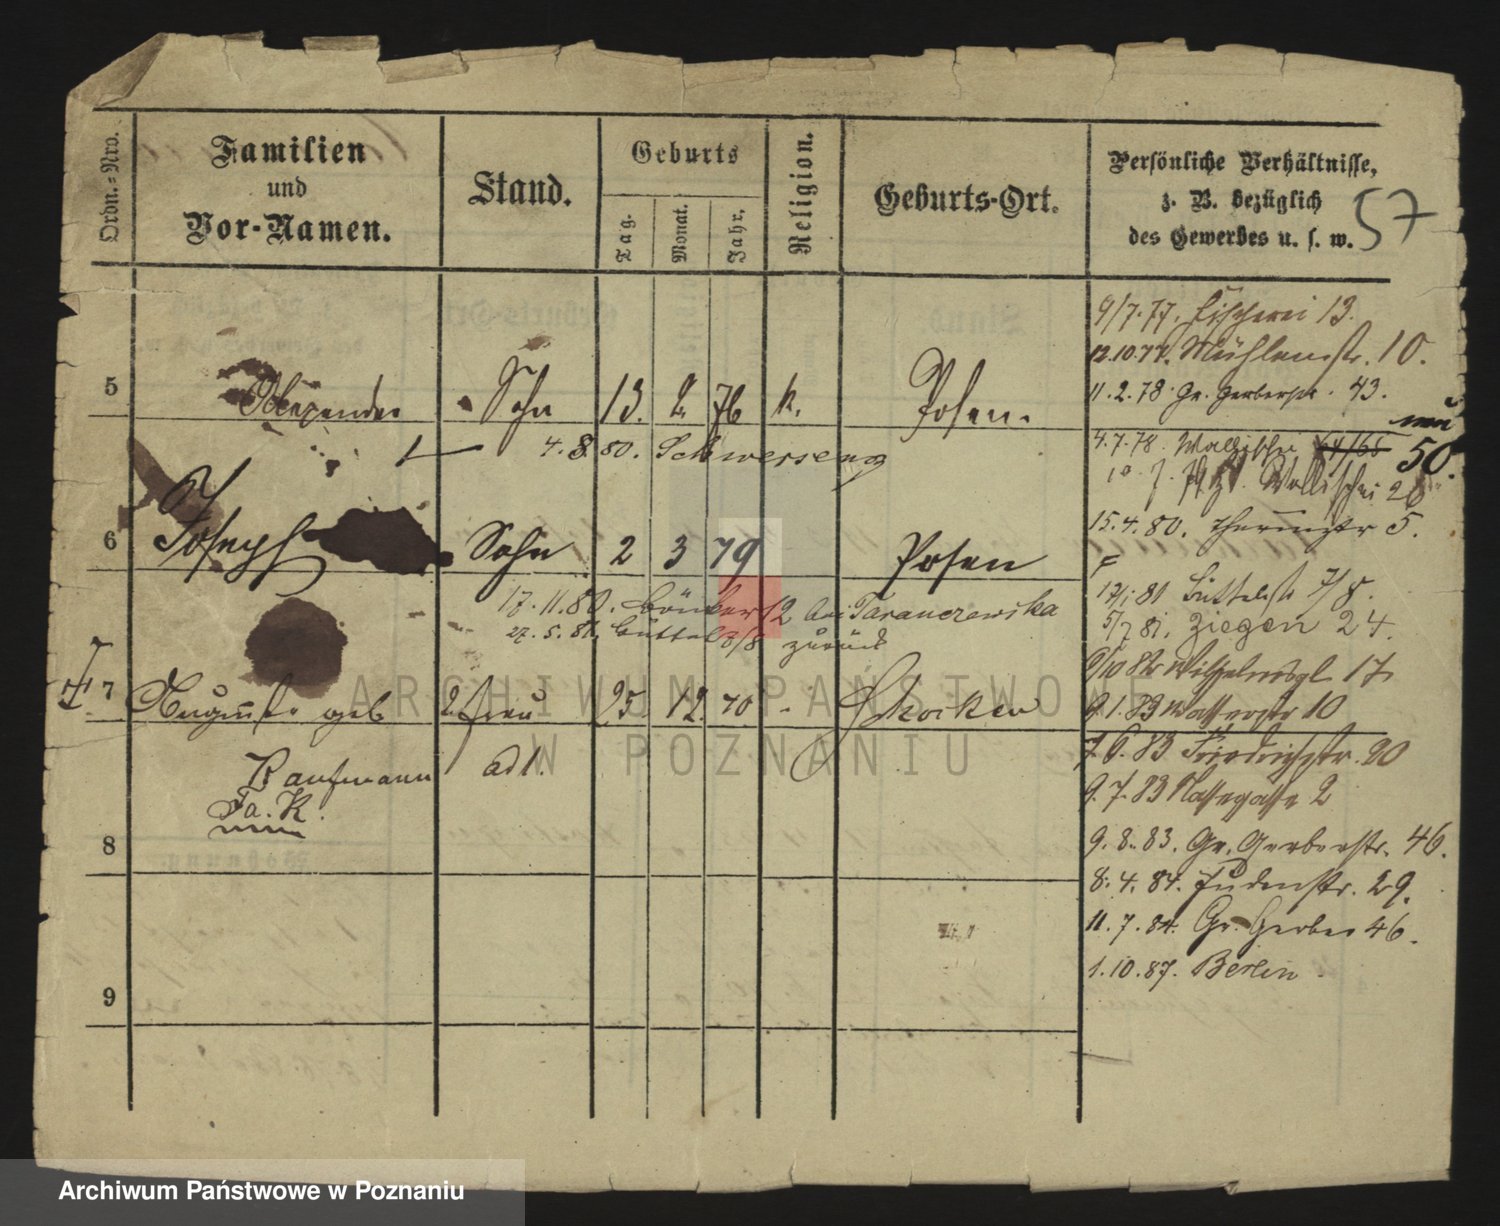 Ordn.-Nro.
Familien
und
Vor-Namen.
Stand.
Geburts
Tag.
Monat.
Jahr.
Religion.
Geburts-Ort.
Persönliche Verhältnisse,
z. B. bezüglich
des Gewerbes u. s. w.
57
9/7.77. Fischerei 13.
12.10.77. Mühlenstr. 10.
5 Alexander Sohn 13. 2. 76 k. Posen.
11.2.78 Gr. Gerberstr. 43.
4.8.80. Schwersenz
4.7.78. Wallischei 64/65 neu 50.
Wallischei
6 Joseph Sohn 2 3 79 Posen
15.4.80. 5.
17.11.80. bei Taranczewska
27.5.81. Büttel 7/8 zurück
17/1 81 Büttelstr 7/8.
5/7 81. Ziegen 24.
7 Auguste geb 2. Frau 25 12. 70 - Schocken
Wilhelmspl. 17
9.1.83 Wasserstr 10
Kaufmann adl.
Fa. K.
7.6.83 Friedrichstr. 20
9.7.83 Nassegasse 2
8
9.8.83. Gr. Gerberstr. 46.
8.4.84. Judenstr. 29.
11.7.84. Gr. Gerber 46.
1.10.87. Berlin.
9
ARCHIWUM PAŃSTWOWE
W POZNANIU
Archiwum Państwowe w Poznaniu